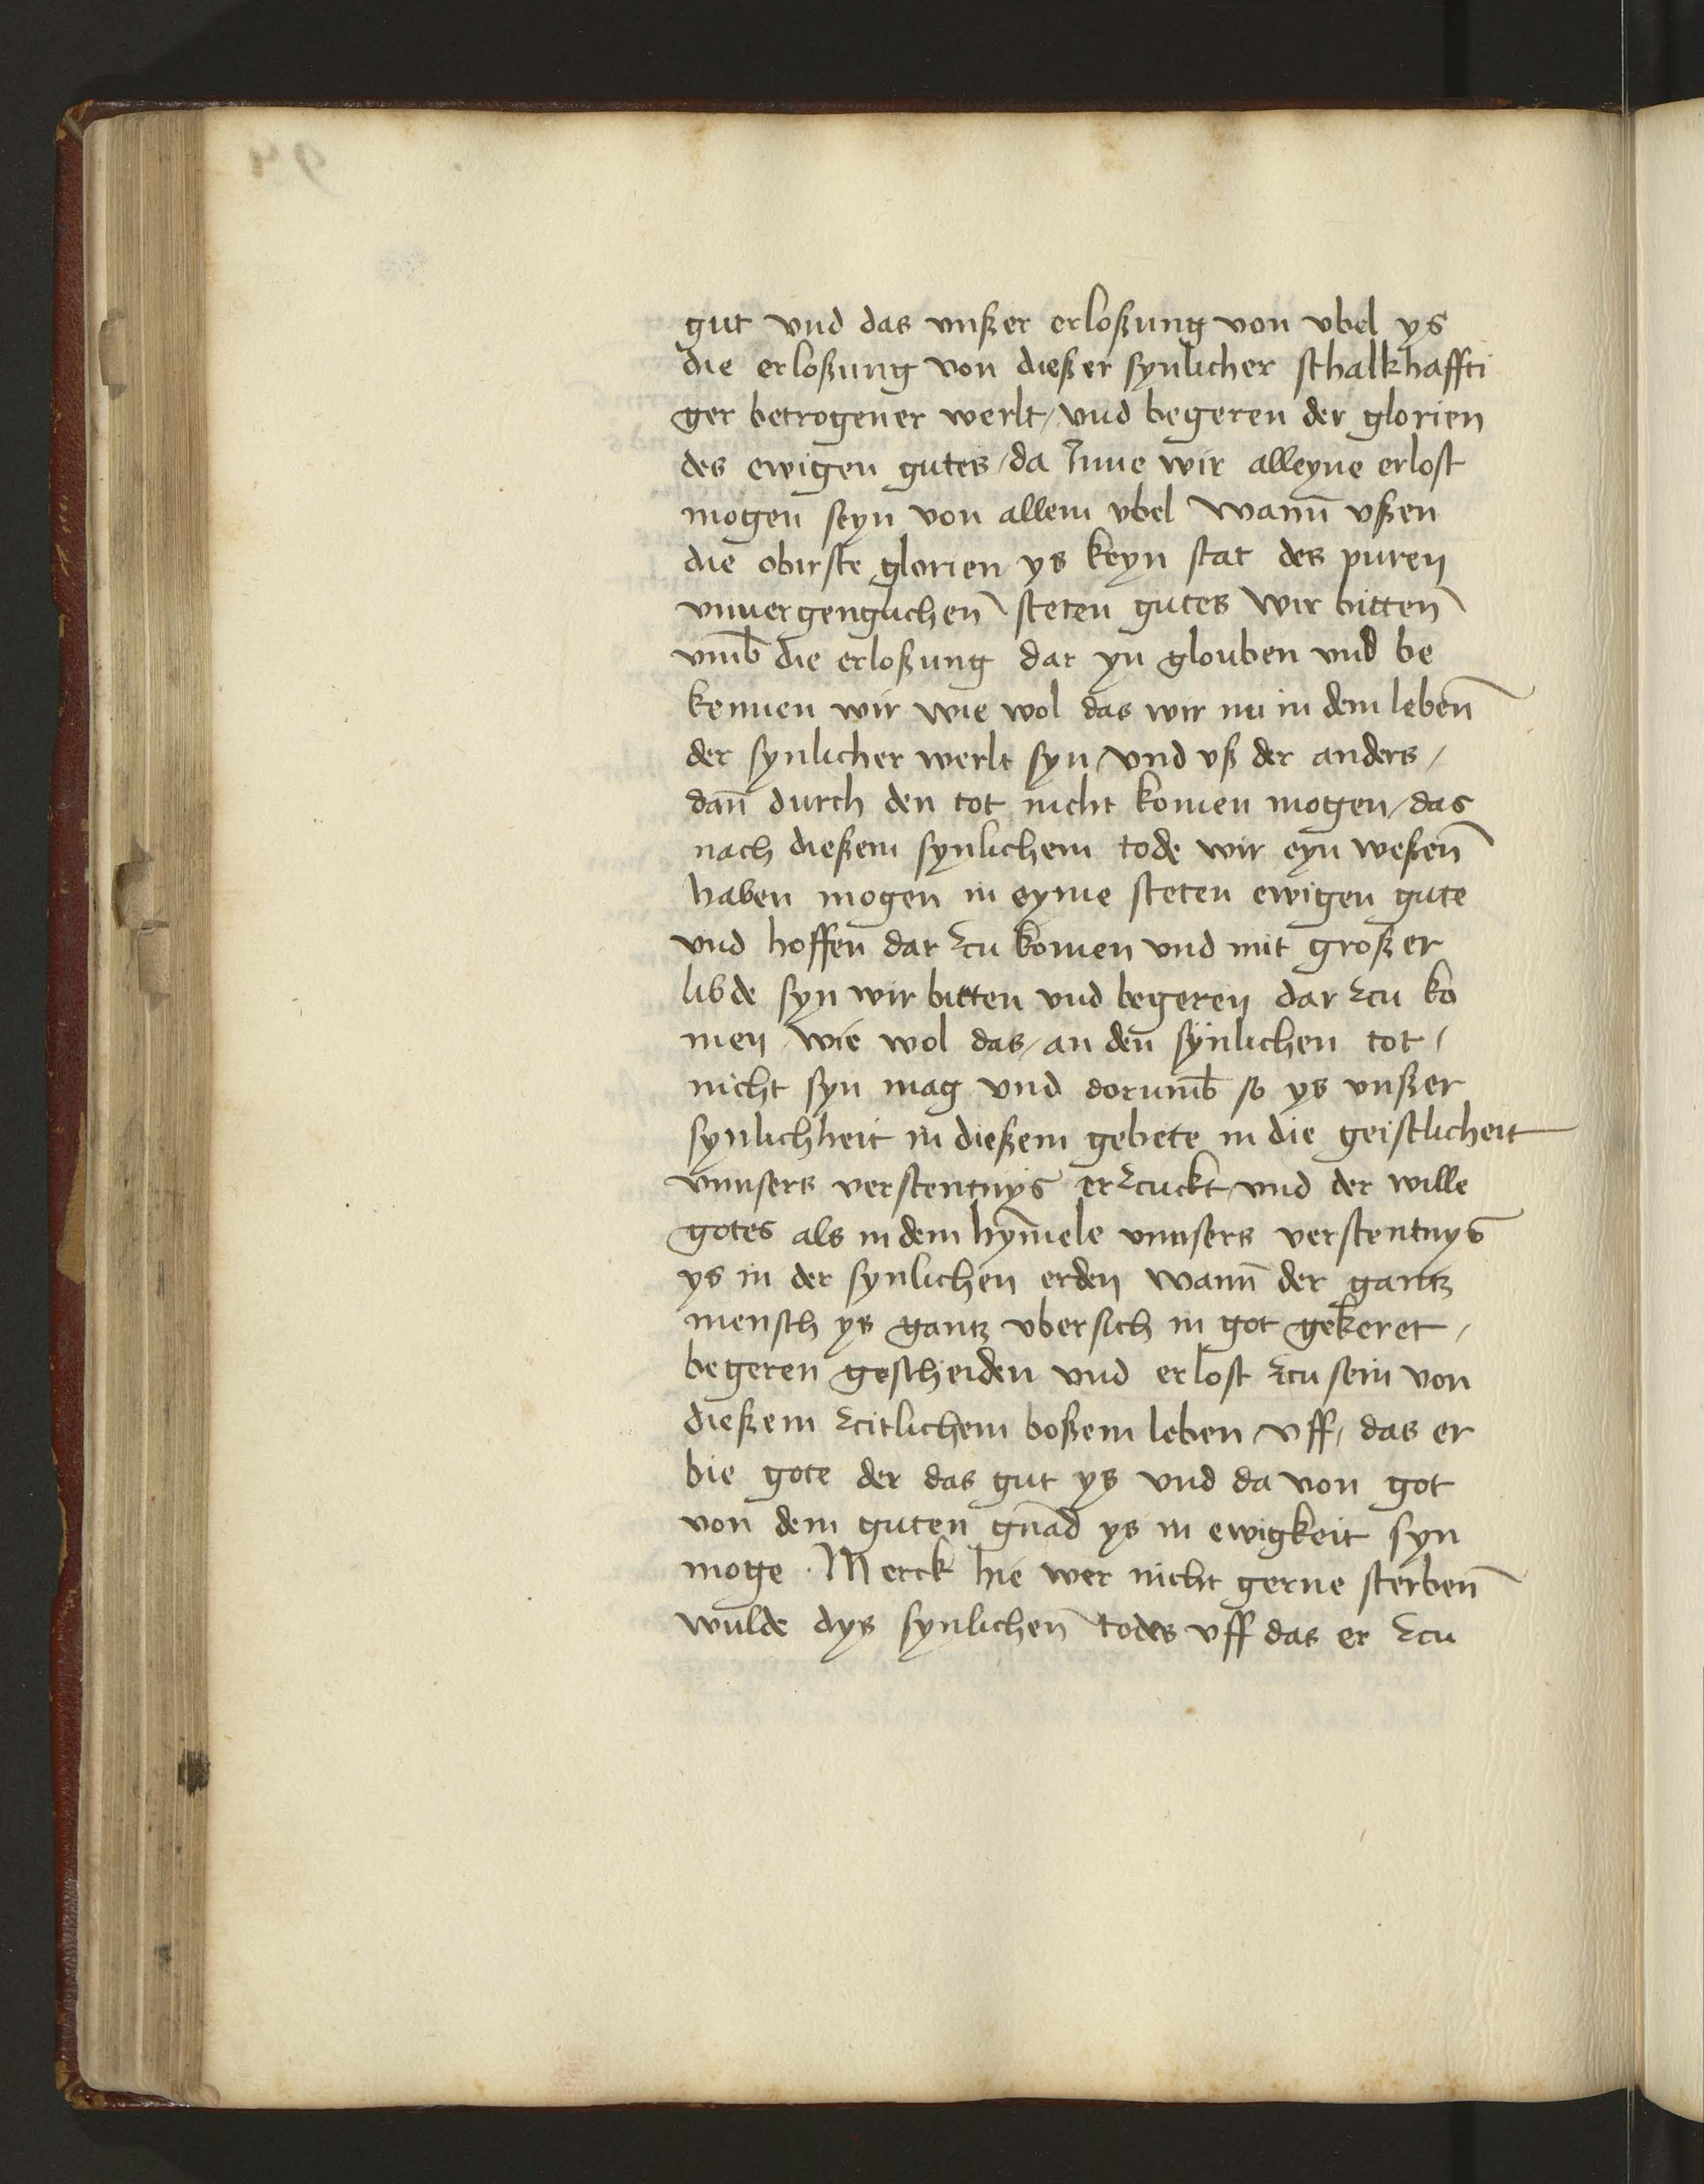 gut vnd das vnßer erloßung von vbel ys
die erloßung von dießer synlicher schalkhaffti
ger betrogener werlt / vnd begeren der glorien
des ewigen gutes / da Inne wir alleyne erlost
mogen seyn von allem vbel wann̄ vßen
die obirste glorien ys keyn stat des puren
vnuergenglichen̄ steten gutes wir bitten̄
vmb̄ die erloßung dar yn glouben vnd be
kennen wir wie wol das wir nu in dem leben̄
der synlicher werlt syn / vnd vß der anders /
dan̄ durch den tot nicht komen mogen / das
nach dießem synlichem tode wir eyn weßen̄
haben mogen in eyme steten ewigen gute
vnd hoffen dar zcu komen vnd mit großer
libde syn wir bitten vnd begeren dar zcu ko
men / wie wol das / an den synlichen tot /
nicht syn mag vnd dorumb̄ so ys vnßer
synlichheit in dießem gebete in die geistlicheit
vnnsers verstentnys erzcuckt / vnd der wille
gotes als in dem hym̄ele vnnsers verstentnys
ys in der synlichen erden wann̄ der gantz
mensch ys gantz vbersich in got gekeret /
begeren gescheiden vnd erlost zcu sein von
dießem zcitlichem boßem leben / vff / das er
bie gote der das gut ys vnd da von got
von dem guten gn̄ad ys in ewigkeit syn
moge · Merck hie wer nicht gerne sterben̄
wulde dys synlichen̄ todes vff das er zcu